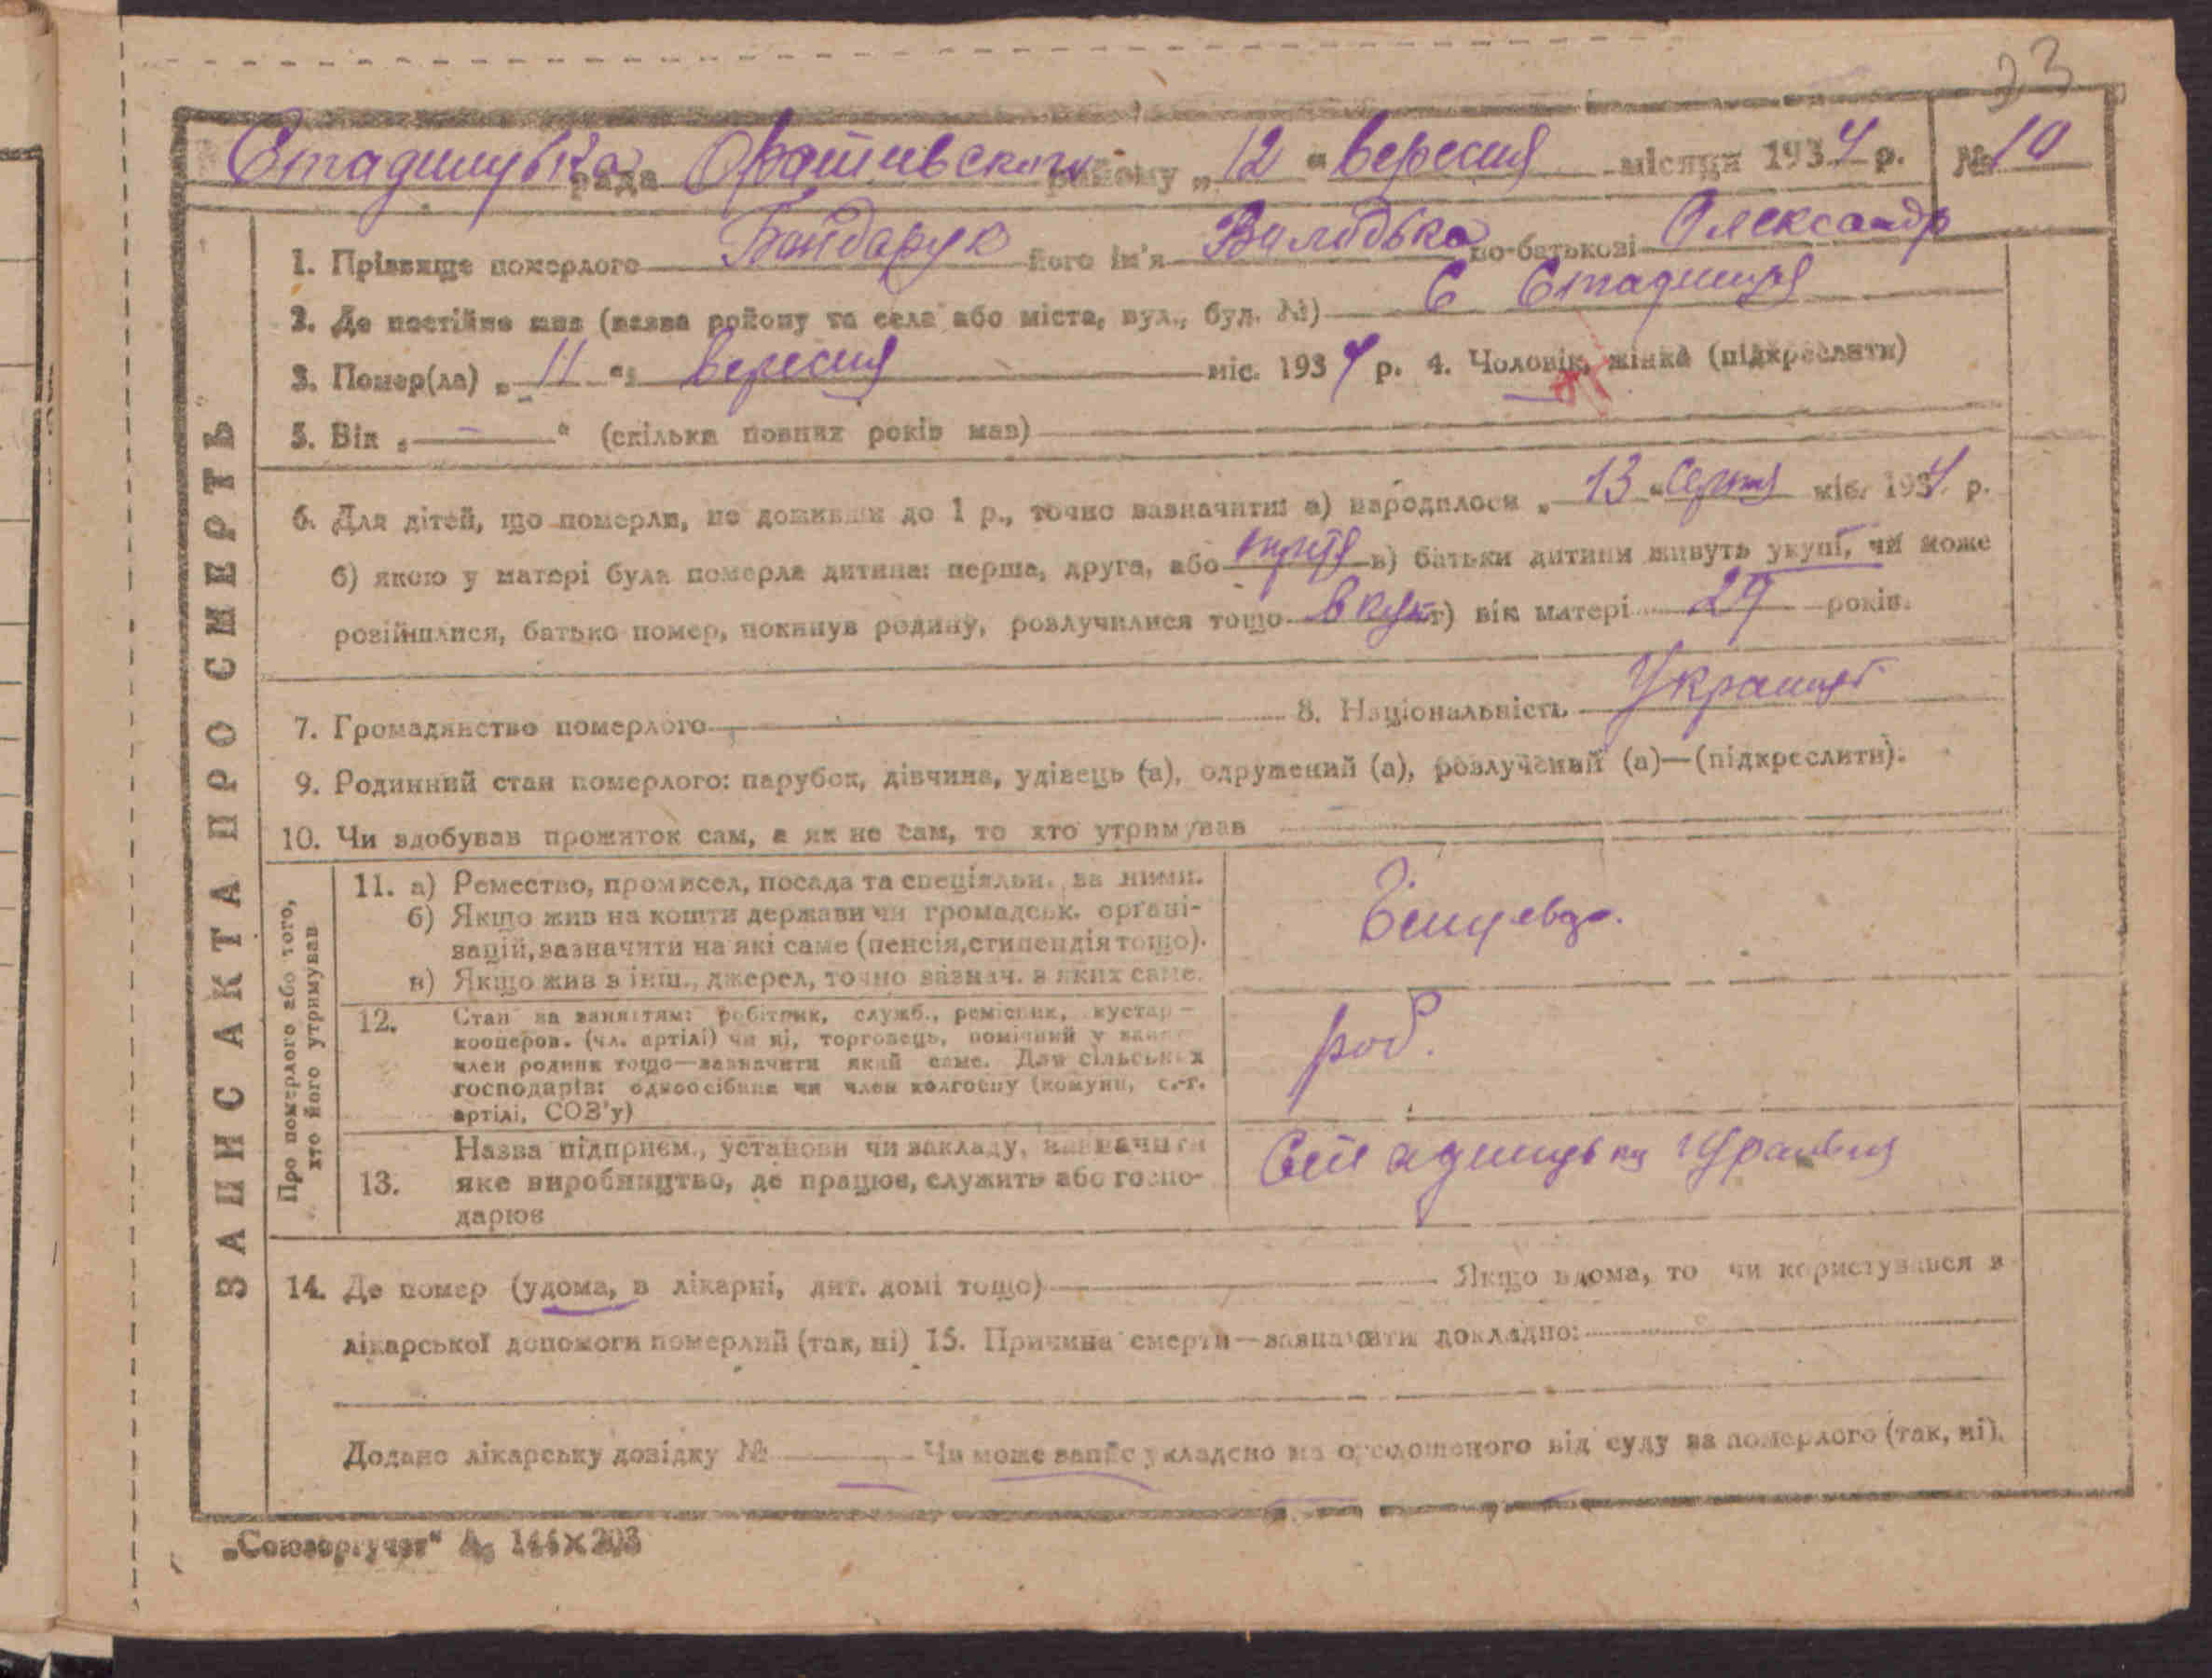 23
Стадницька рада Оратівського району „12“ вересня місяця 1934 р. № 10
ЗАПИС АКТА ПРО СМЕРТЬ
1. Прізвище померлого Бондарук його ім'я Валодька по-батькові Олександр
2. Де постійно жив (назва району та села або міста, вул., буд. №) С Стадниця
3. Помер(ла) „11“ вересня міс. 1934 р. 4. Чоловік, жінка (підкреслити)
5. Вік „ — “ (скільки повних років мав)
6. Для дітей, що померли, не доживши до 1 р., точно зазначити: а) народилося „13“ серпня міс. 1934 р.
б) якою у матері була померла дитина: перша, друга, або третя в) батьки дитини живуть укупі, чи може
розійшлися, батько помер, покинув родину, розлучилися тощо вкупі г) вік матері 29 років.
7. Громадянство померлого 8. Національність
9. Родинний стан померлого: парубок, дівчина, удівець (а), одружений (а), розлучений (а)—(підкреслити).
10. Чи здобував прожиток сам, а як не сам, то хто утримував
Про померлого або того,
хто його утримував
11. а) Ремество, промисел, посада та спеціяльн. за ними.
б) Якщо жив на кошти держави чи громадськ. органі-
зацій, зазначити на які саме (пенсія, стипендія тощо).
в) Якщо жив з інш., джерел, точно зазнач. з яких саме.
12. Стан за заняттям: робітник, служб., ремісник, кустар—
кооперов. (чл. артілі) чи ні, торговець, помічний у
член родини тощо—зазначити який саме. Для сільських
господарів: одноосібник чи член колгоспу (комуни, с.-г.
артілі, СОЗ'у)
роб.
13. Назва підприєм., установи чи закладу, зазначити
яке виробництво, де працює, служить або госпо-
дарює
14. Де помер (удома, в лікарні, дит. домі тощо) Якщо вдома, то чи користувався з
лікарської допомоги померлий (так, ні) 15. Причина смерти—зазначити докладно:
Додано лікарську довідку № Чи може запис укладено на оголошеного від суду за померлого (так, ні).
„Союзоргучет“ А₆ 144×203